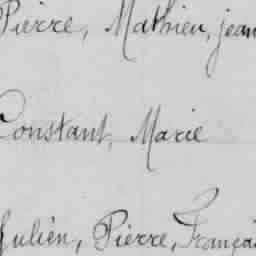 Pierre, Mathieu, jean
Constant, Marie
Julien, Pierre, Françoi